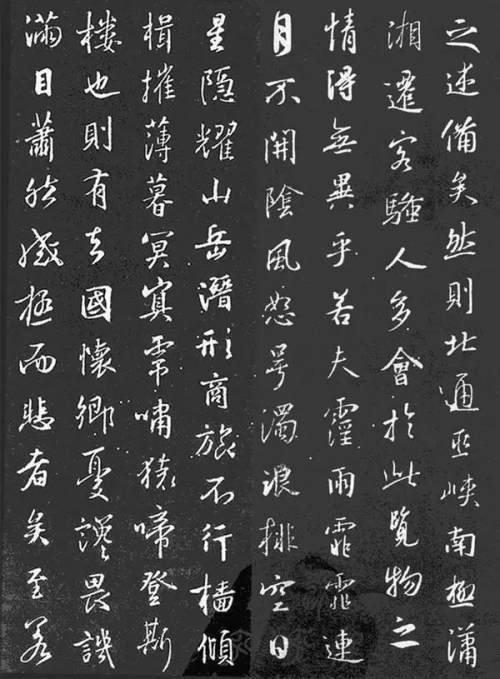 之述備矣然則北通巫峽南極瀟
湘遷客騷人多會於此覽物之
情得無異乎若夫霪雨霏霏連
月不開陰風怒号濁浪排空日
星隱耀山岳潛形商旅不行檣傾
楫摧薄暮冥冥虎嘯猿啼登斯
樓也則有去國懷鄉憂讒畏譏
滿目蕭然感極而悲者矣至若